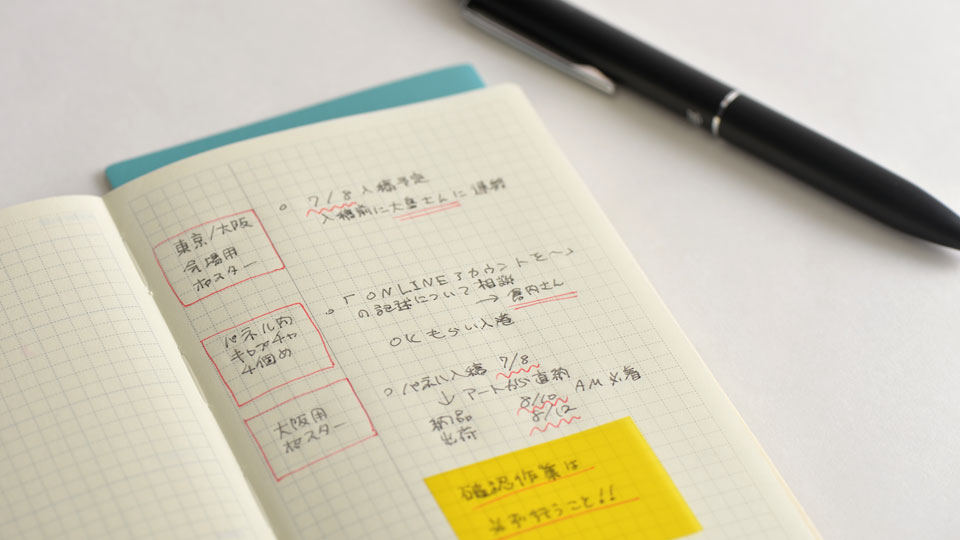 東京/大阪
会場用
ポスター
○ 7/8 入稿予定
入稿前に大島さんに連絡
パネル内
キャプチャ
4個め
○ 「ONLINEアカウントを〜」
の記述について相談
→ 倉内さん
OKもらい入港
大阪用
ポスター
○ パネル入稿 7/8
↓ アートから直納
納品 8/10 AM必着
出荷 8/12
確認作業は
必ず行うこと!!